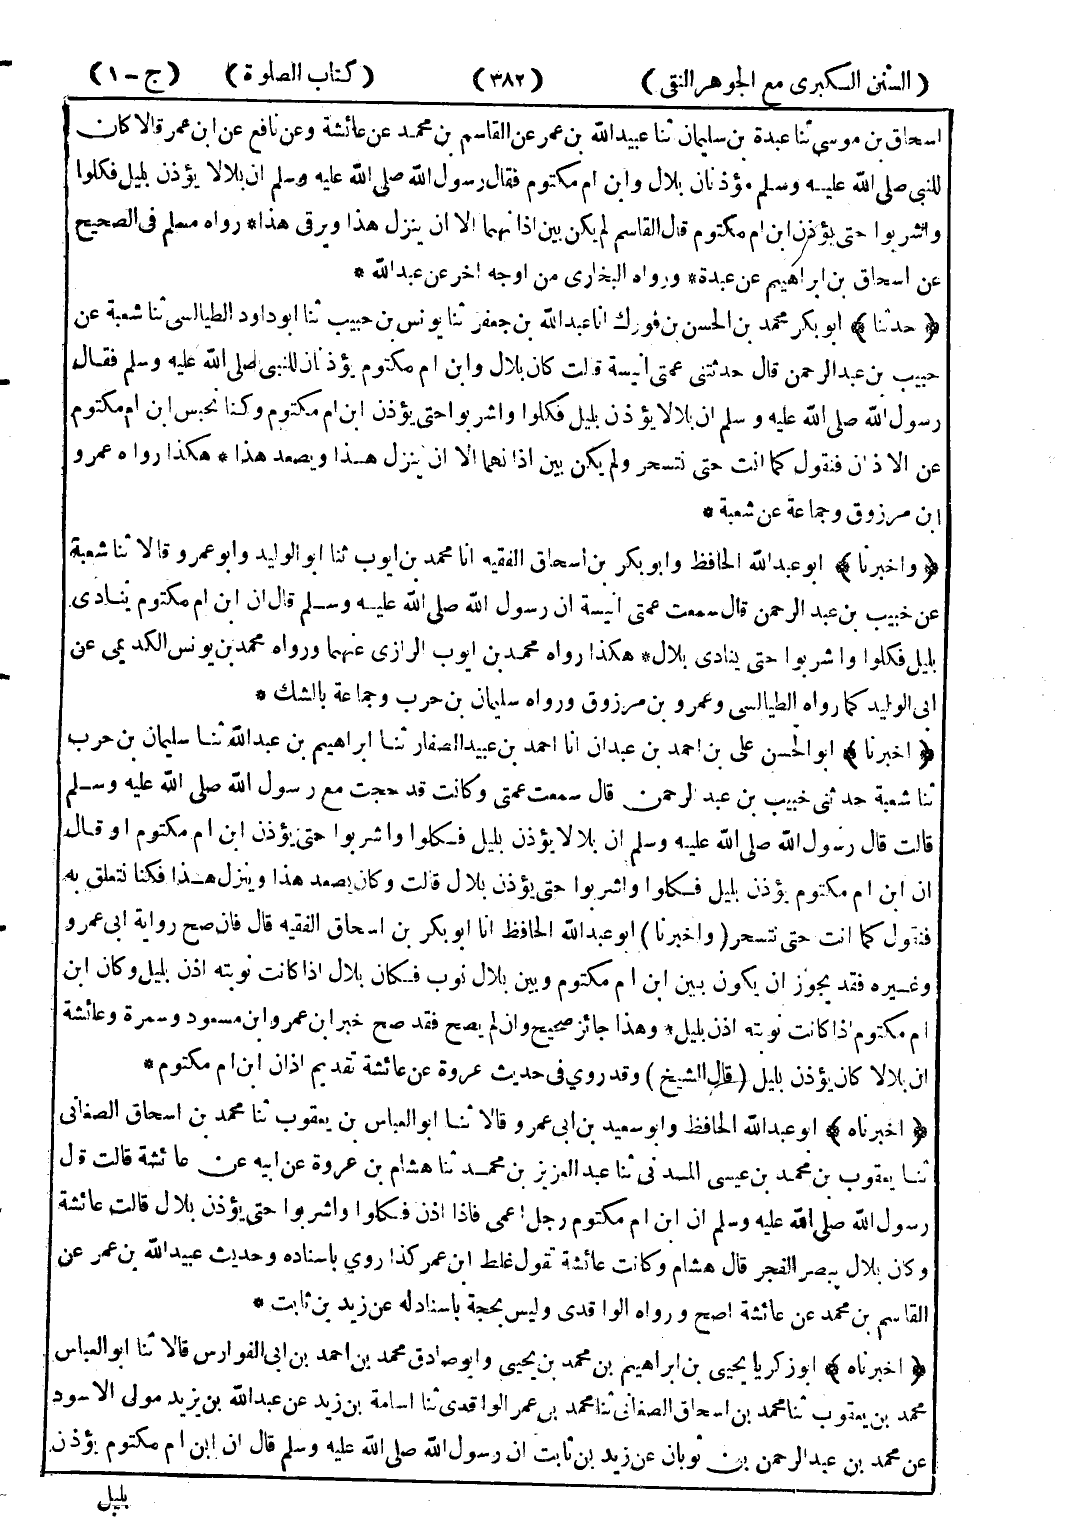 ( السنن الكبرى مع الجوهر النقى ) ( ٣٨٢ ) ( كتاب الصلوة ) ( ج - ١ )
اسحاق بن موسى ثنا عبدة بن سليمان ثنا عبيدالله بن عمر عن القاسم بن محمد عن عائشة وعن نافع عن ابن عمر قالا كان
للنبى صلى الله عليه وسلم مؤذنان بلال وابن ام مكتوم فقال رسول الله صلى الله عليه وسلم ان بلالا يؤذن بليل فكلوا
واشربوا حتى يؤذن ابن ام مكتوم قال القاسم لم يكن بين اذانهما الا ان ينزل هذا ويرقى هذا * رواه مسلم فى الصحيح
عن اسحاق بن ابراهيم عن عبدة * ورواه البخارى من اوجه اخر عن عبدالله *
﴿ حدثنا ﴾ ابوبكر محمد بن الحسن بن فورك انا عبدالله بن جعفر ثنا يونس بن حبيب ثنا ابوداود الطيالسى ثنا شعبة عن
حبيب بن عبدالرحمن قال حدثتنى عمتى انيسة قالت كان بلال وابن ام مكتوم يؤذنان للنبى صلى الله عليه وسلم فقال
رسول الله صلى الله عليه وسلم ان بلالا يؤذن بليل فكلوا واشربوا حتى يؤذن ابن ام مكتوم وكنا نحبس ابن ام مكتوم
عن الاذان فنقول كما انت حتى نتسحر ولم يكن بين اذانهما الا ان ينزل هذا ويصعد هذا * هكذا رواه عمرو
ابن مرزوق وجماعة عن شعبة *
﴿ واخبرنا ﴾ ابو عبدالله الحافظ وابوبكر بن اسحاق الفقيه انا محمد بن ايوب ثنا ابو الوليد وابو عمرو قالا ثنا شعبة
عن خبيب بن عبد الرحمن قال سمعت عمتى انيسة ان رسول الله صلى الله عليه وسلم قال ان ابن ام مكتوم ينادى
بليل فكلوا واشربوا حتى ينادى بلال * هكذا رواه محمد بن ايوب الرازى عنهما ورواه محمد بن يونس الكديمى عن
ابى الوليد كما رواه الطيالسى وعمرو بن مرزوق ورواه سليمان بن حرب وجماعة بالشك *
﴿ اخبرنا ﴾ ابو الحسن على بن احمد بن عبدان انا احمد بن عبيد الصفار ثنا ابراهيم بن عبدالله ثنا سليمان بن حرب
ثنا شعبة حدثنى خبيب بن عبد الرحمن قال سمعت عمتى وكانت قد حجت مع رسول الله صلى الله عليه وسلم
قالت قال رسول الله صلى الله عليه وسلم ان بلالا يؤذن بليل فكلوا واشربوا حتى يؤذن ابن ام مكتوم او قال
ان ابن ام مكتوم يؤذن بليل فكلوا واشربوا حتى يؤذن بلال قالت وكان يصعد هذا وينزل هذا فكنا نتعلق به
فنقول كما انت حتى نتسحر ( واخبرنا ) ابو عبدالله الحافظ انا ابو بكر بن اسحاق الفقيه قال فان صح رواية ابى عمرو
وغيره فقد يجوز ان يكون بين ابن ام مكتوم وبين بلال نوب فكان بلال اذا كانت نوبته اذن بليل وكان ابن
ام مكتوم اذا كانت نوبته اذن بليل * وهذا جائز صحيح وان لم يصح فقد صح خبر ابن عمر وابن مسعود وسمرة وعائشة
ان بلالا كان يؤذن بليل ( قال الشيخ ) وقد روي فى حديث عروة عن عائشة تقديم اذان ابن ام مكتوم *
﴿ اخبرناه ﴾ ابو عبدالله الحافظ وابو سعيد بن ابى عمرو قالا ثنا ابو العباس بن يعقوب ثنا محمد بن اسحاق الصغانى
ثنا يعقوب بن محمد بن عيسى المدنى ثنا عبد العزيز بن محمد ثنا هشام بن عروة عن ابيه عن عائشة قالت قال
رسول الله صلى الله عليه وسلم ان ابن ام مكتوم رجل اعمى فاذا اذن فكلوا واشربوا حتى يؤذن بلال قالت عائشة
وكان بلال يبصر الفجر قال هشام وكانت عائشة تقول غلط ابن عمر كذا روي باسناده وحديث عبيدالله بن عمر عن
القاسم بن محمد عن عائشة اصح ورواه الواقدى وليس بحجة باسناد له عن زيد بن ثابت *
﴿ اخبرناه ﴾ ابو زكريا يحيى بن ابراهيم بن محمد بن يحيى وابو صادق محمد بن احمد بن ابى الفوارس قالا ثنا ابو العباس
محمد بن يعقوب ثنا محمد بن اسحاق الصغانى ثنا محمد بن عمر الواقدى ثنا اسامة بن زيد عن عبدالله بن يزيد مولى الاسود
عن محمد بن عبدالرحمن بن ثوبان عن زيد بن ثابت ان رسول الله صلى الله عليه وسلم قال ان ابن ام مكتوم يؤذن
بليل